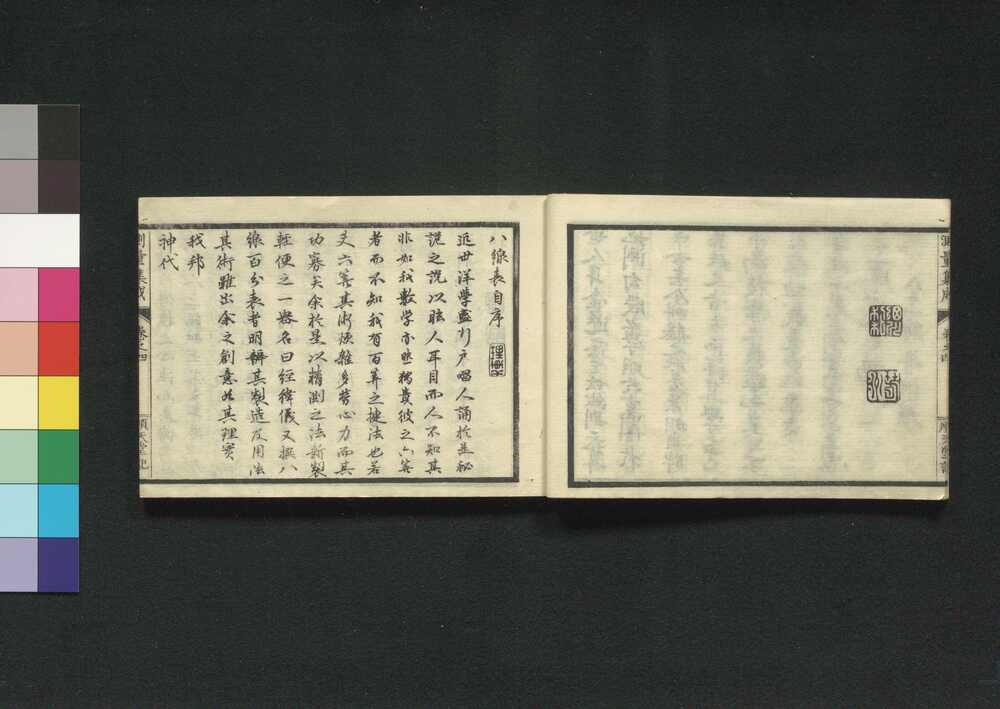 測量集成
卷之四
八線表自序
近世洋學盛行戸唱人誦於是秘
説之説以眩人耳目而人不知其
非如我數学亦然獨貴彼之六算
者而不知我有百算之捷法也若
夫六算其術煩雜多勞心力而其
功寡矣余於是以精測之法新製
軽便之一器名曰經緯儀又撰八
線百分表者明辨其製造及用法
其術雖出余之創意然其理實
我邦
神代
測量集成
卷之四
順天堂記